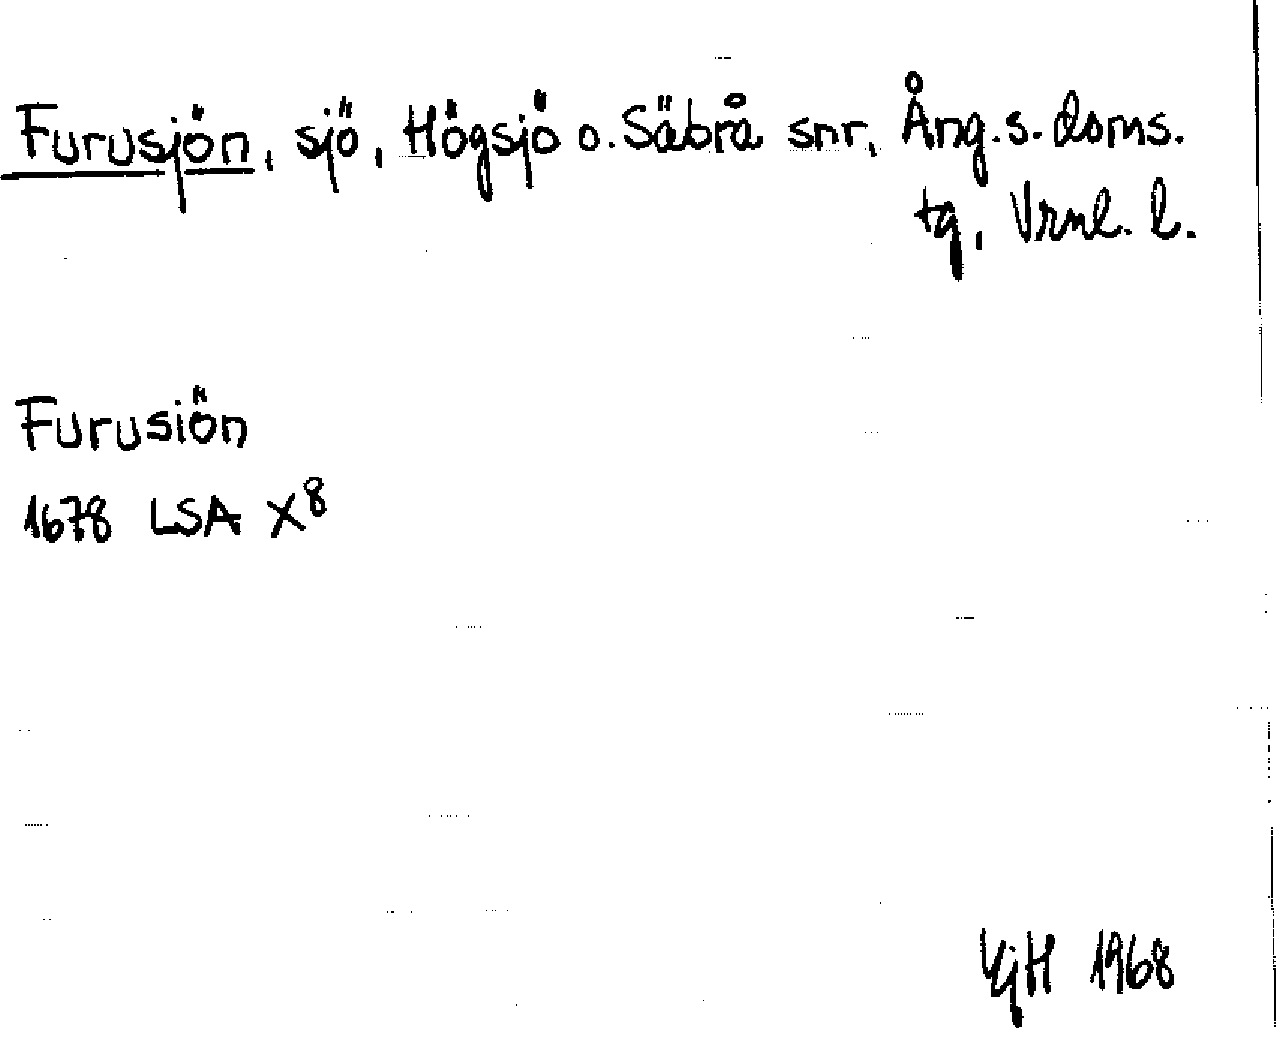 Furusjön, sjö, Högsjö o. Säbrå snr, Ång. s. doms.
tg, Vrnl. l.
Furusiön
1678 LSA X8
1968